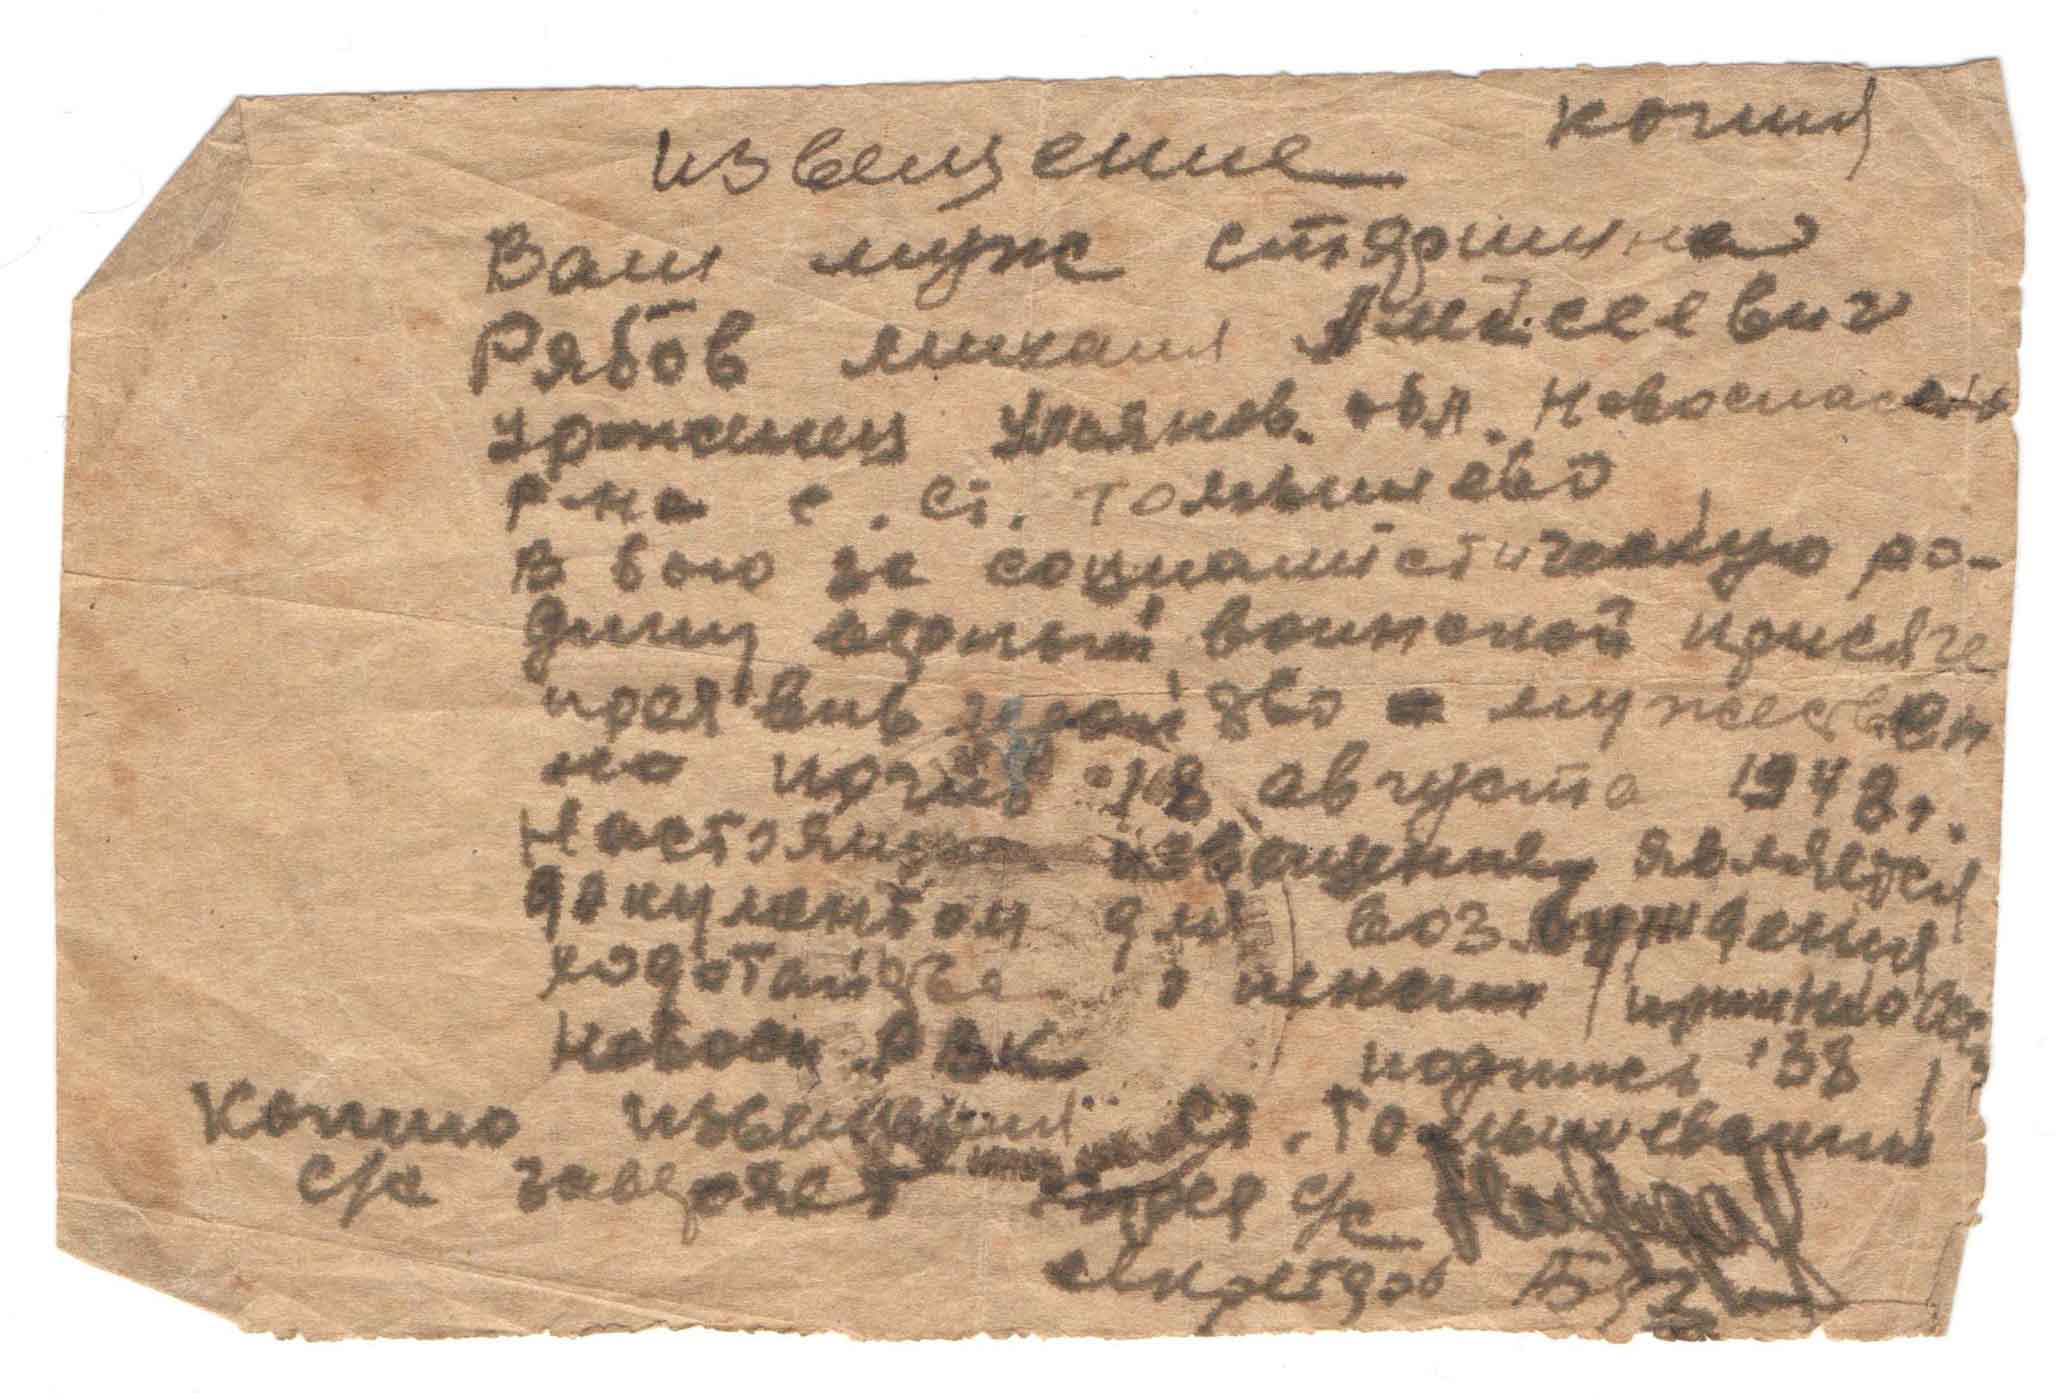 копия
извещение
Ваш муж старшина
Рябов михаил Алексеевич
уроженец Ульянов. обл. Новоспасск
р-на с. Ст. Томышево
в бою за социалистическую ро-
дину верный воинской присяге
проявив геройство и мужествен
но погиб 18 августа 194
Настоящее извещение является
документом для возбуждения
ходатайства о пенсии
Новосп. РВК подпись
Копию извещения Ст. Томышевский
с/с заверяет с/с
секретарь